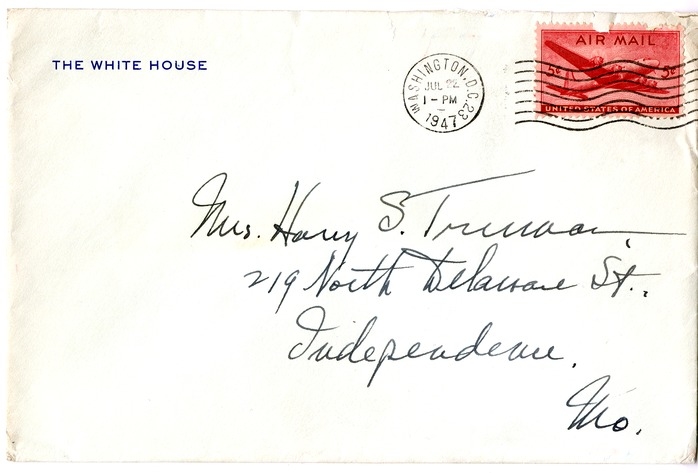 THE WHITE HOUSE
WASHINGTON, D.C. 23
JUL 22
1 - PM
1947
AIR MAIL
5¢ 5¢
UNITED STATES OF AMERICA
Mrs. Harry S. Truman,
219 North Delaware St.,
Independence,
Mo.